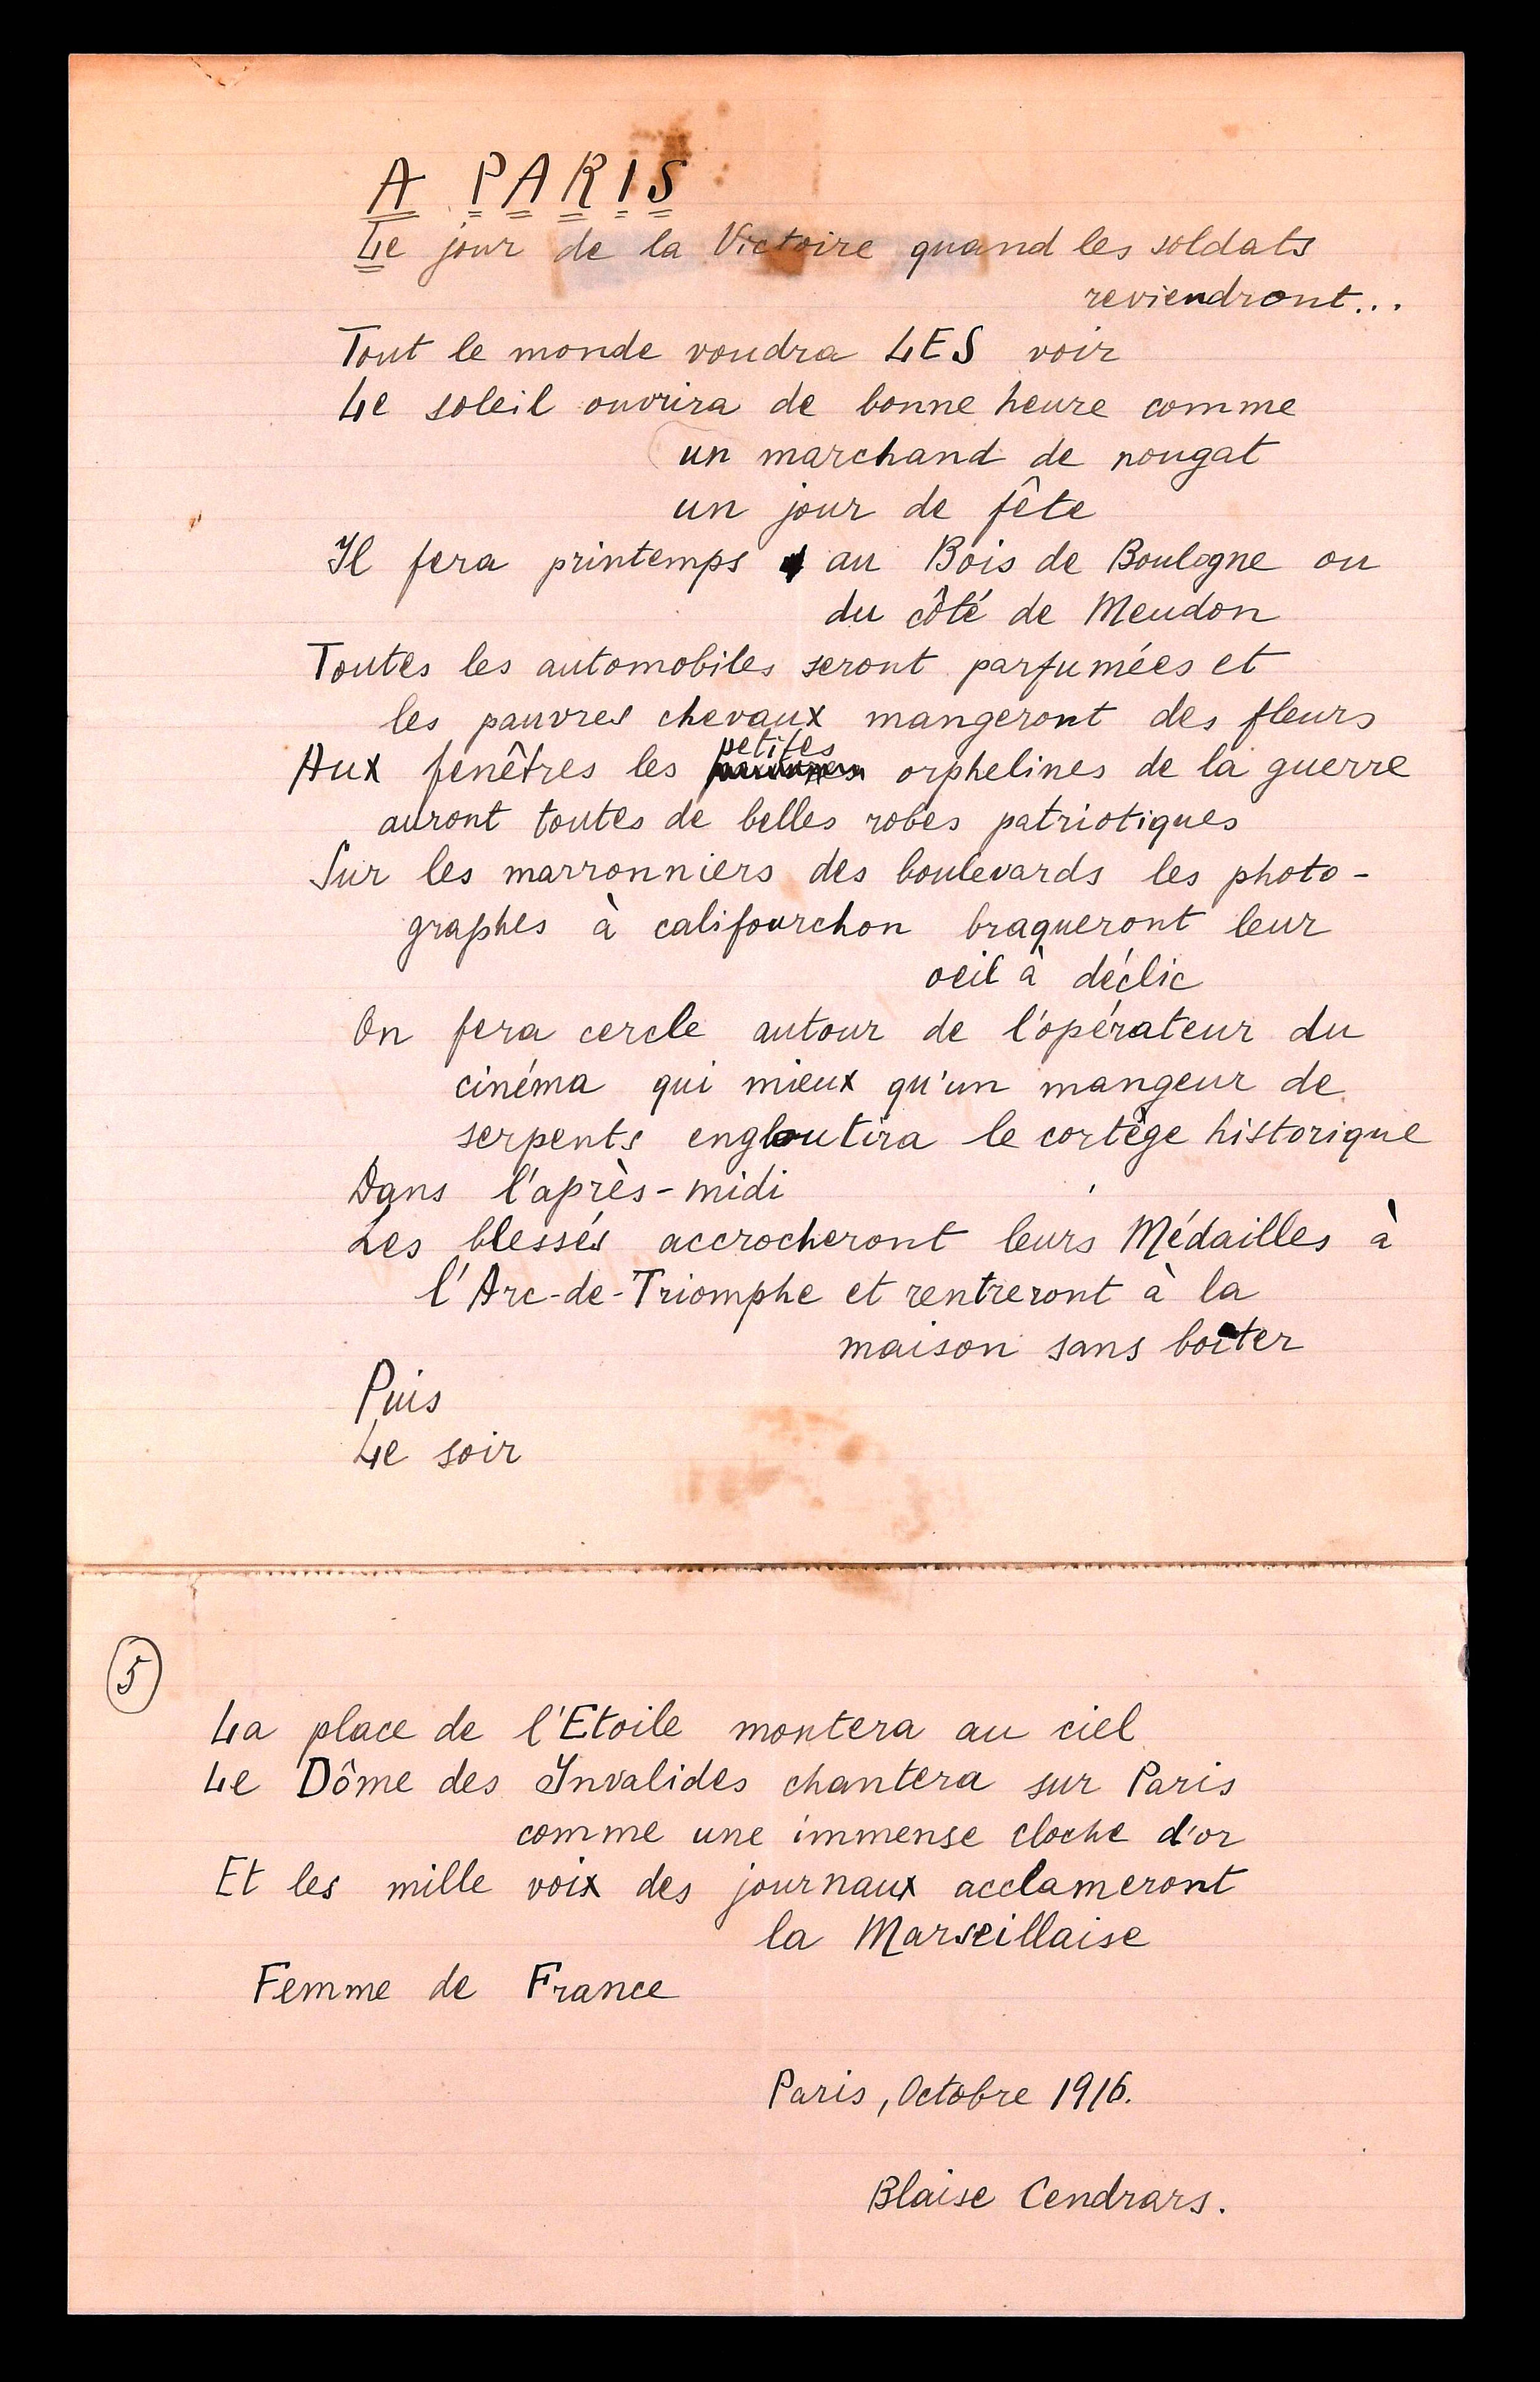 A PARIS
Le jour de la Victoire quand les soldats
reviendront...
Tout le monde voudra LES voir
Le soleil ouvrira de bonne heure comme
un marchand de nougat
un jour de fête
Il fera printemps au Bois de Boulogne ou
du côté de Meudon
Toutes les automobiles seront parfumées et
les pauvres chevaux mangeront des fleurs
petites
Aux fenêtres les orphelines de la guerre
auront toutes de belles robes patriotiques
Sur les marronniers des boulevards les photo-
graphes à califourchon braqueront leur
oeil à déclic
On fera cercle autour de l'opérateur du
cinéma qui mieux qu'un mangeur de
serpents engloutira le cortège historique
Dans l'après-midi
Les blessés accrocheront leurs Médailles à
l'Arc-de-Triomphe et rentreront à la
maison sans boiter
Puis
Le soir
5
La place de l'Etoile montera au ciel
Le Dôme des Invalides chantera sur Paris
comme une immense cloche d'or
Et les mille voix des journaux acclameront
la Marseillaise
Femme de France
Paris, Octobre 1916.
Blaise Cendrars.